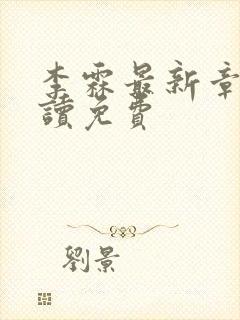 李霖最新章
讀免費
劉景